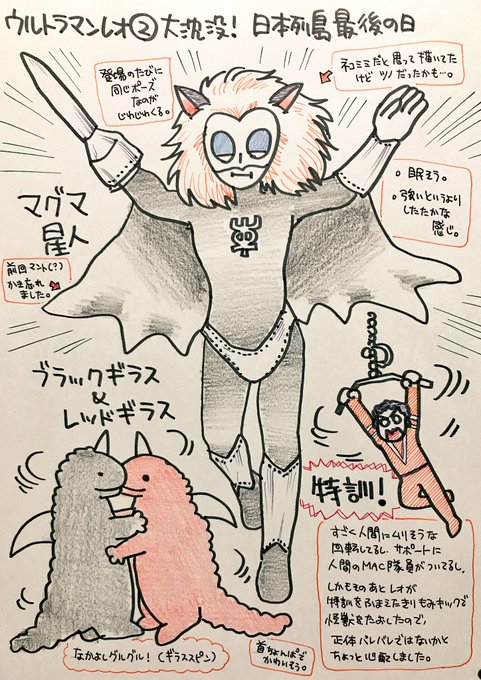 ウルトラマンレオ② 大沈没! 日本列島最後の日
登場のたびに
同じポーズ
なのが
じわじわくる。
ネコミミだと思って描いてた
けど ツノだったかも…。
。眠そう。
。強いというより
したたかな
感じ。
マグマ
星人
前回マント(?)
かき忘れ
ました。
ブラックギラス
&
レッドギラス
特訓!
すごく人間にムリそうな
回転してるし、サポートに
人間のMAC隊員がついてるし。
しかもそのあとレオが
特訓をふまえたきりもみキックで
怪獣をたおしたので
正体バレバレではないかと
ちょっと心配しました。
なかよしグルグル! (ギラススピン)
首ちょんぱで
かわいそう。